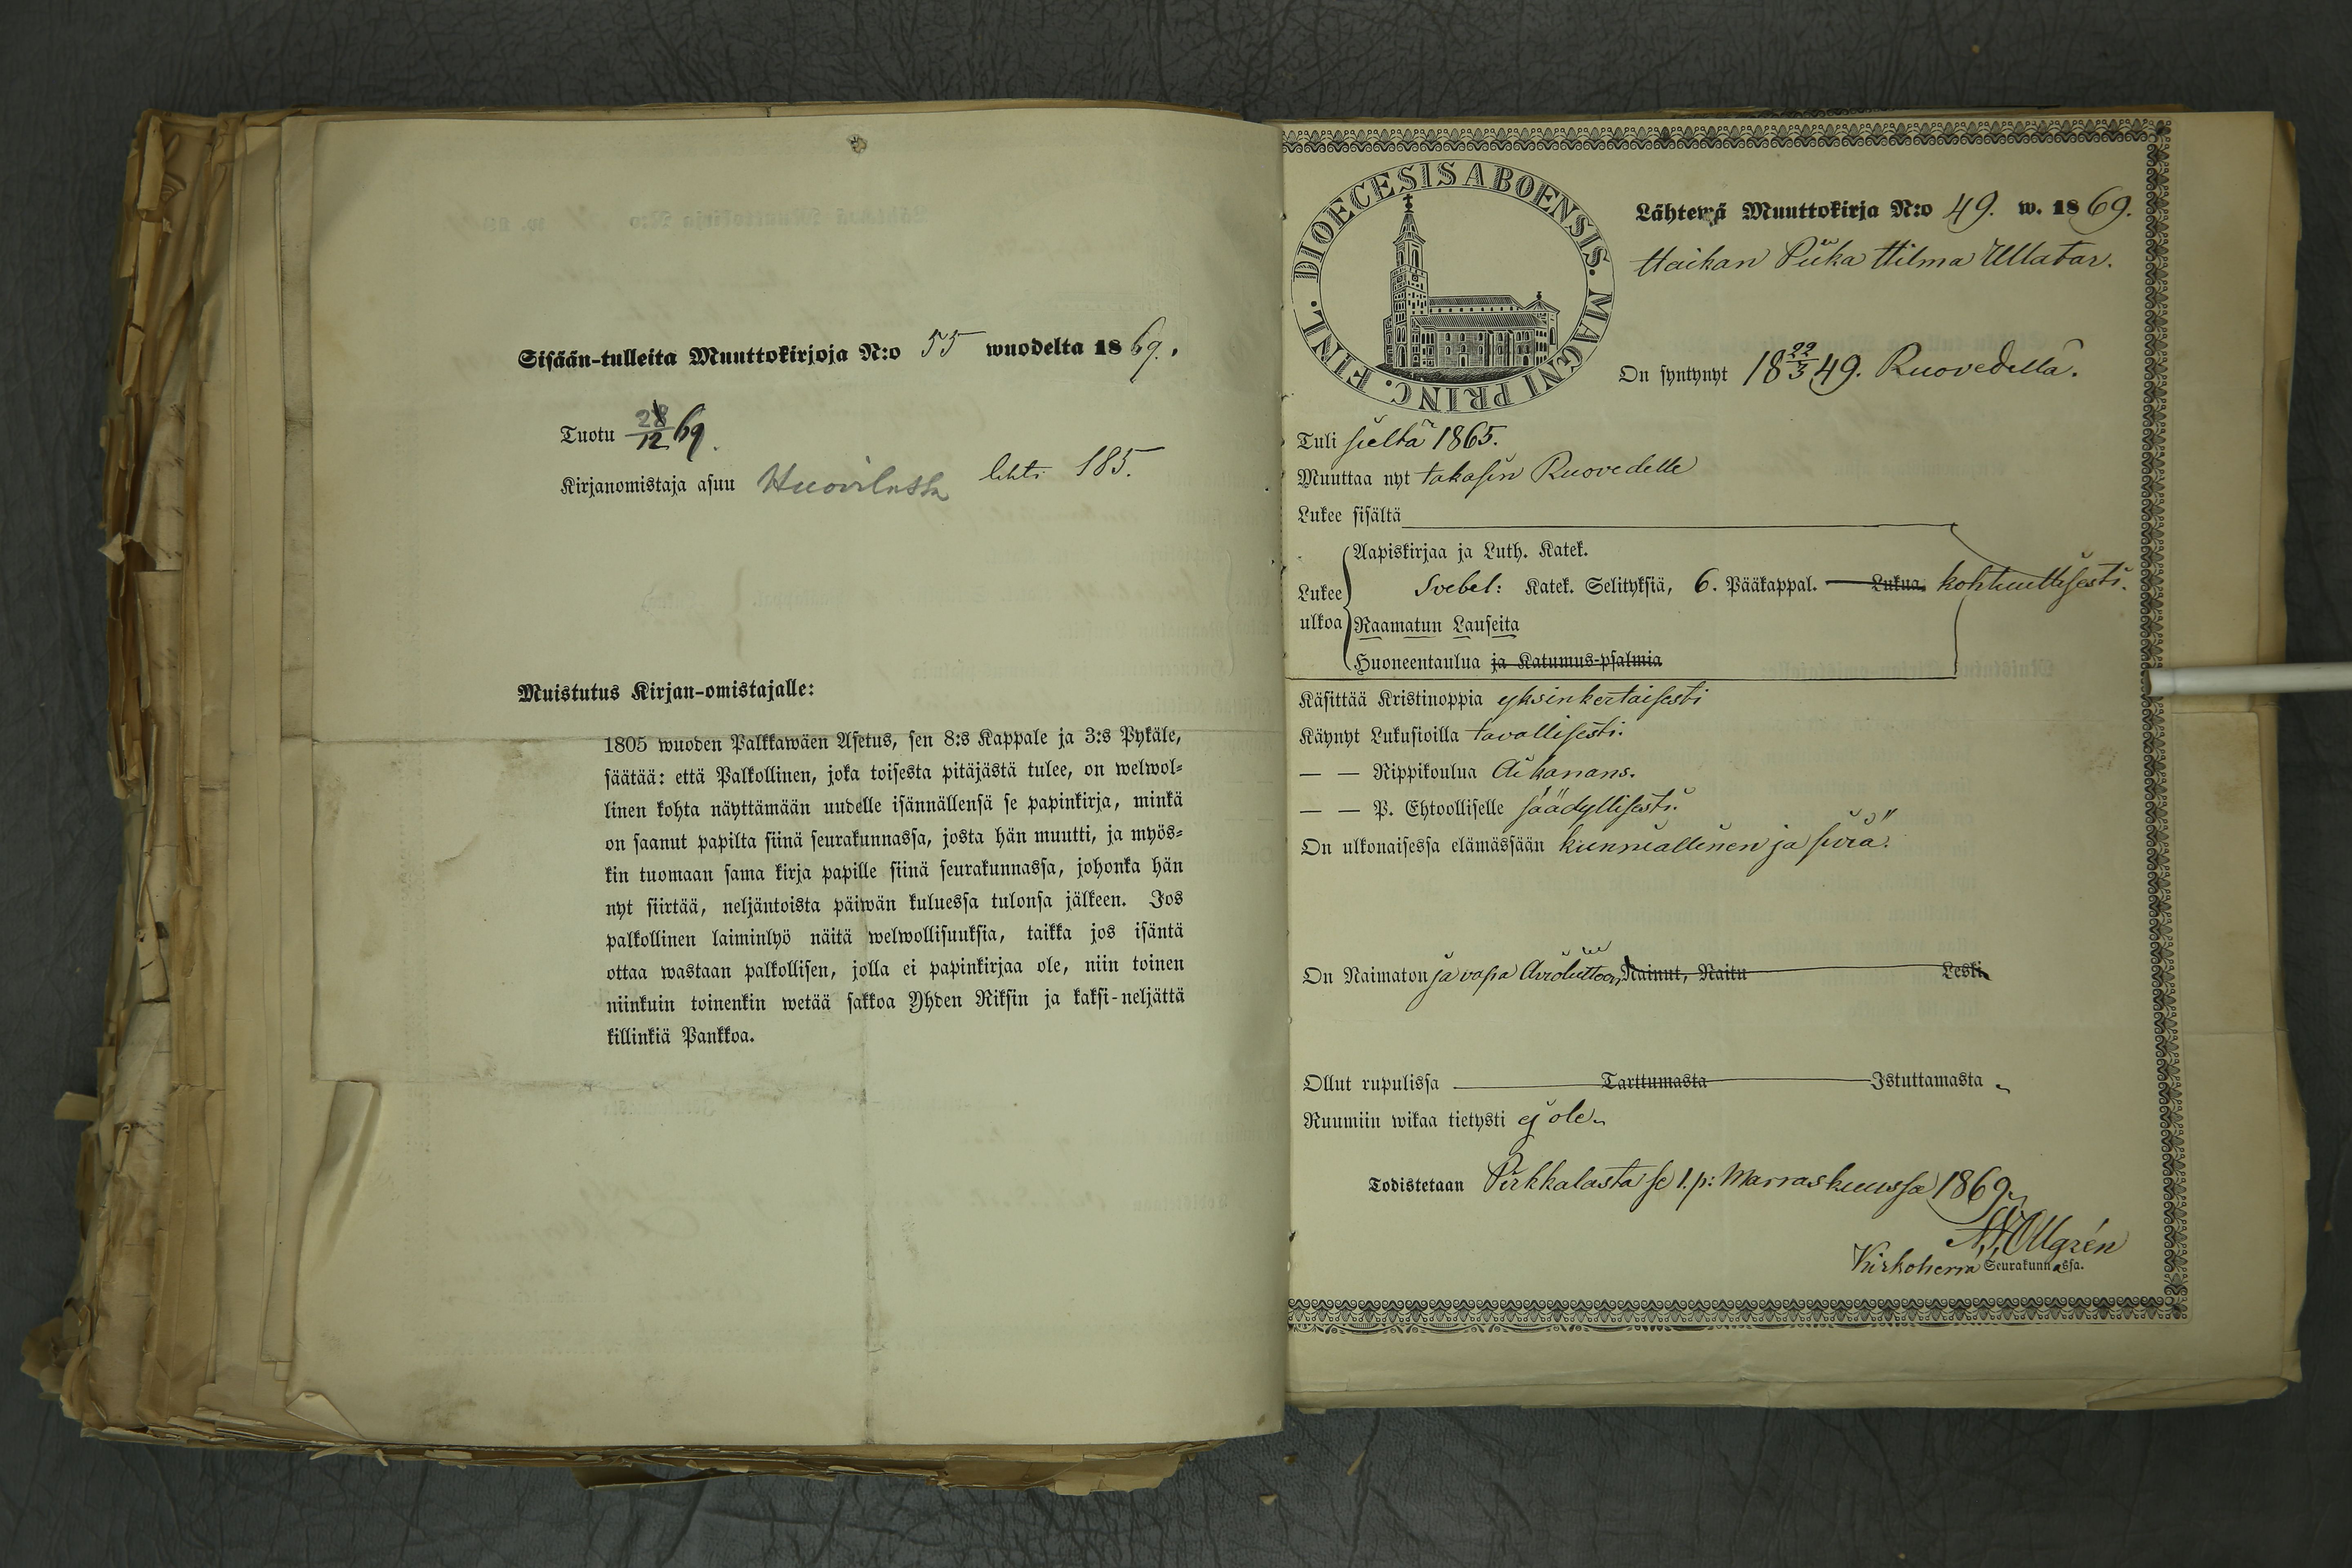 Sisään-tulleita Muuttokirjoja N:o 55 wuodelta 1869.
Tuotu 28/12 69.
Kirjanomistaja asuu Huovilassa lehti 185.
Muistutus Kirjan-omistajalle:
1805 wuoden Palkkawäen Asetus, sen 8:s Kappale ja 3:s Pykäle,
säätää: että Palkollinen, joka toisesta pitäjästä tulee, on welwol-
linen kohta näyttämään uudelle isännällensä se papinkirja, minkä
on saanut papilta siinä seurakunnassa, josta hän muutti, ja myös-
kin tuomaan sama kirja papille siinä seurakunnassa, johonka hän
nyt siirtää, neljäntoista päiwän kuluessa tulonsa jälkeen. Jos
palkollinen laiminlyö näitä welwollisuuksia, taikka jos isäntä
ottaa wastaan palkollisen, jolla ei papinkirjaa ole, niin toinen
niinkuin toinenkin wetää sakkoa Yhden Riksin ja kaksi-neljättä
killinkiä Pankkoa.
DIOECESIS ABOENSIS. MAGNI PRINC. FINL.
Lähtewä Muuttokirja N:o 49. w. 1869.
Haikan Piika Hilma Ullatar.
On syntynyt 18 22/3 49. Ruovedellä.
Tuli sieltä 1865.
Muuttaa nyt takasin Ruovedelle
Lukee sisältä
Aapiskirjaa ja Luth. Katek.
Lukee ulkoa Svebel: Katek. Selityksiä, 6. Pääkappal. Lukua. kohtuullisesti.
Raamatun Lauseita
Huoneentaulua ja Katumus-psalmia
Käsittää Kristinoppia yksinkertaisesti
Käynyt Lukusioilla tavallisesti.
— — Rippikoulua Aikanans.
— — P. Ehtoolliselle säädyllisesti.
On ulkonaisessa elämässään kunniallinen ja siviä.
On Naimaton ja vapa Avioliittoon, Nainut, Naitu Leski
Ollut rupulissa Tarttumasta Istuttamasta
Ruumiin wikaa tietysti ej ole.
Todistetaan Pirkkalasta se 1. p: Marraskuussa 1869.
Allgrén
Kirkoherra Seurakunnassa.